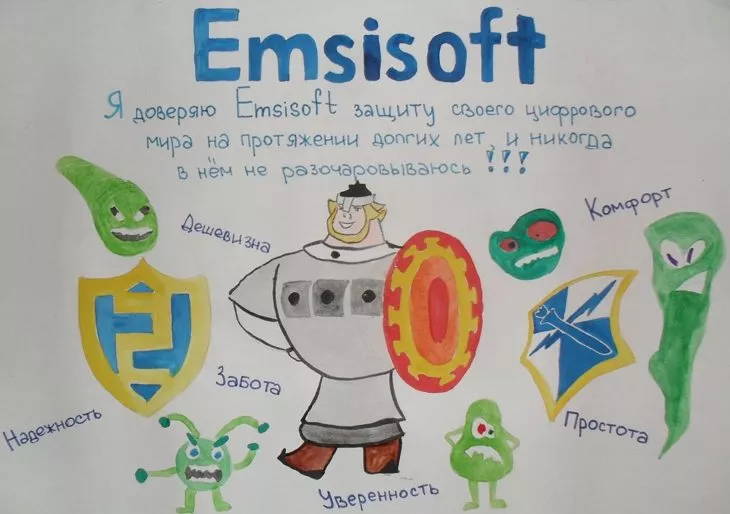 Emsisoft
Я доверяю Emsisoft защиту своего цифрового
мира на протяжении долгих лет, и никогда
в нём не разочаровываюсь !!!
Дешевизна
Комфорт
Забота
Надежность
Простота
Уверенность